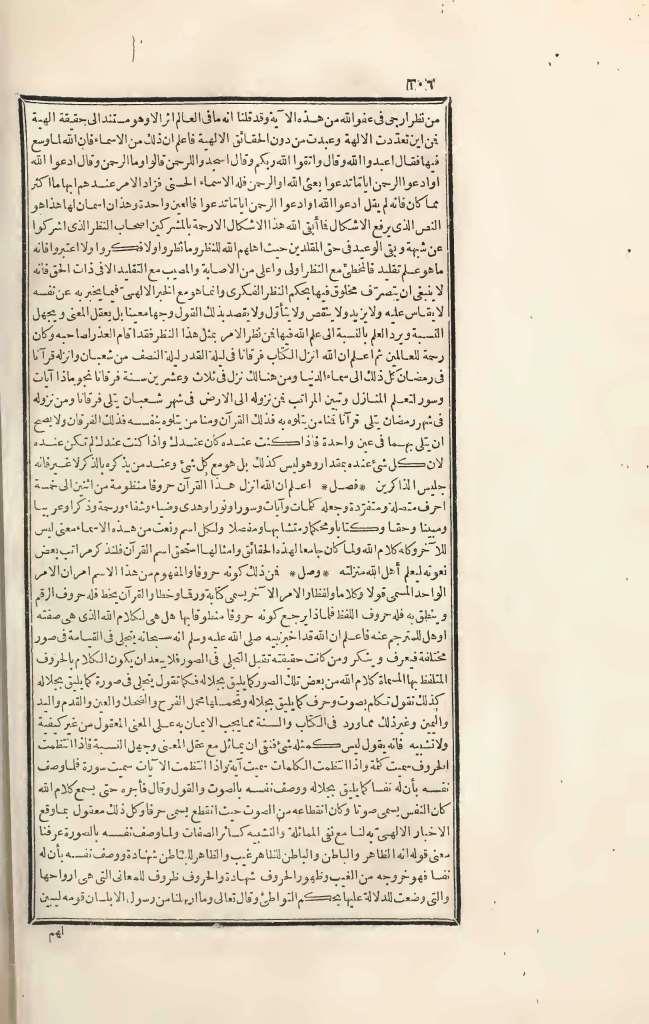 ٣٠٦
من نظر ارجى فى عفو الله من هذه الآية وقد قلنا انه ما فى العالم اثر الا وهو مستند الى حقيقة الهية
فمن اين تعددت الالهة وعبدت من دون الحقائق الالهية فاعلم ان ذلك من الاسماء فان الله لما وسع
فيها فقال اعبدوا الله وقال واتقوا الله ربكم وقال اسجدوا للرحمن قالوا وما الرحمن وقال ادعوا الله
او ادعوا الرحمن ايا ما تدعوا يعنى الله او الرحمن فله الاسماء الحسنى فزاد الامر عندهم ابهاما اكثر
مما كان فانه لم يقل ادعوا الله او ادعوا الرحمن ايا ما تدعوا فالعين واحدة وهذان اسمان لها هذا هو
النص الذى يرفع الاشكال فما أبقى الله هذا الاشكال الا رحمة بالمشركين اصحاب النظر الذى اشركوا
عن شبهة وبقى الوعيد فى حق المقلدين حيث اهلهم الله للنظر وما نظروا ولا فكروا ولا اعتبروا فانه
ما هو علم تقليد فالمخطئ مع النظر اولى واعلى من الاصابة والمصيب مع التقليد الا فى ذات الحق فانه
لا ينبغى ان يتصرف مخلوق فيها بحكم النظر الفكرى وانما هو مع الخبر الالهى فيما يخبر به عن نفسه
لا يقاس عليه ولا يزيد ولا ينقص ولا يتأول ولا يقصد بذلك القول وجها معينا بل يعقل المعنى ويجهل
النسبة ويرد العلم بالنسبة الى علم الله فيها فمن نظر الامر بمثل هذا النظر فقد اقام العذر لصاحبه وكان
رحمة للعالمين ثم اعلم ان الله انزل الكتاب فرقانا فى ليلة القدر ليلة النصف من شعبان وانزله قرآنا
فى رمضان كل ذلك الى سماء الدنيا ومن هنالك نزل فى ثلاث وعشرين سنة فرقانا نجوما ذا آيات
وسور لتعلم المنازل وتبين المراتب فمن نزوله الى الارض فى شهر شعبان يتلى فرقانا ومن نزوله
فى شهر رمضان يتلى قرآنا فمنا من يتلوه به فذلك القرآن ومنا من يتلوه بنفسه فذلك الفرقان ولا يصح
ان يتلى بهما فى عين واحدة فاذا كنت عنده كان عندك واذا كنت عندك لم تكن عنده
لان كل شئ عنده بمقدار وهو ليس كذلك بل هو مع كل شئ وعند من يذكره بالذكر لا غير فانه
جليس الذاكرين * فصل * اعلم ان الله انزل هذا القرآن حروفا منظومة من اثنين الى خمسة
احرف متصلة ومتفردة وجعله كلمات وآيات وسورا ونورا وهدى وضياء وشفاء ورحمة وذكرا وعربيا
ومبينا وحقا وكتابا ومحكما ومتشابها ومفصلا ولكل اسم ونعت من هذه الاسماء معنى ليس
للآخر وكله كلام الله ولما كان جامعا لهذه الحقائق وامثالها استحق اسم القرآن فلنذكر مراتب بعض
نعوته ليعلم أهل الله منزلته * وصل * فمن ذلك كونه حروفا والمفهوم من هذا الاسم امران الامر
الواحد المسمى قولا وكلاما ولفظا والامر الآخر يسمى كتابة ورقما وخطا والقرآن يخط فله حروف الرقم
وينطق به فله حروف اللفظ فلماذا يرجع كونه حروفا منطوقا بها هل هى لكلام الله الذى هى صفته
او هل للمترجم عنه فاعلم ان الله قد اخبر نبيه صلى الله عليه وسلم انه سبحانه يتجلى فى القيامة فى صور
مختلفة فيعرف وينكر ومن كانت حقيقته تقبل التجلى فى الصور فلا يبعد ان يكون الكلام بالحروف
المتلفظ بها المسماة كلام الله من بعض تلك الصور كما يليق بجلاله فكما تقول يتجلى فى صورة كما يليق بجلاله
كذلك تقول تكلم بصوت وحرف كما يليق بجلاله ونحملها محمل الفرح والضحك والعين والقدم واليد
واليمين وغير ذلك مما ورد فى الكتاب والسنة مما يجب الايمان به على المعنى المعقول من غير كيفية
ولا تشبيه فانه يقول ليس كمثله شئ فنفى ان يماثل مع عقل المعنى وجهل النسبة فاذا انتظمت
الحروف سميت كلمة واذا انتظمت الكلمات سميت آية واذا انتظمت الآيات سميت سورة فلما وصف
نفسه بأن له نفسا كما يليق بجلاله ووصف نفسه بالصوت والقول وقال فأجره حتى يسمع كلام الله
كان النفس يسمى صوتا وكان انقطاعه من الصوت حيث انقطع يسمى حرفا وكل ذلك معقول بما وقع
الاخبار الالهى به لنا مع نفى المماثلة والتشبيه كسائر الصفات ولما وصف نفسه بالصورة عرفنا
معنى قوله انه الظاهر والباطن فالباطن للظاهر غيب والظاهر للباطن شهادة ووصف نفسه بأن له
نفسا فهو خروجه من الغيب وظهور الحروف شهادة والحروف ظروف للمعانى التى هى ارواحها
والتى وضعت للدلالة عليها بحكم التواطئ وقال تعالى وما ارسلنا من رسول الا بلسان قومه ليبين
لهم